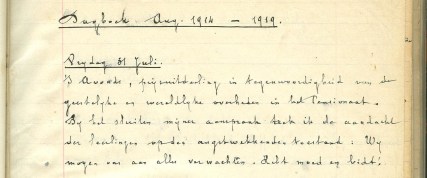 Dagboek Aug. 1914 – 1919.
Vrijdag 31 Juli.
's Avonds, prijsuitdeeling in tegenwoordigheid van de
geestelijke en wereldlijke overheden in het Pensionaat.
Bij het sluiten mijner aanspraak trek ik de aandacht
der leerlingen op den angstwekkenden toestand: Wij
mogen ons aan alles verwachten. Hebt moed en bidt!